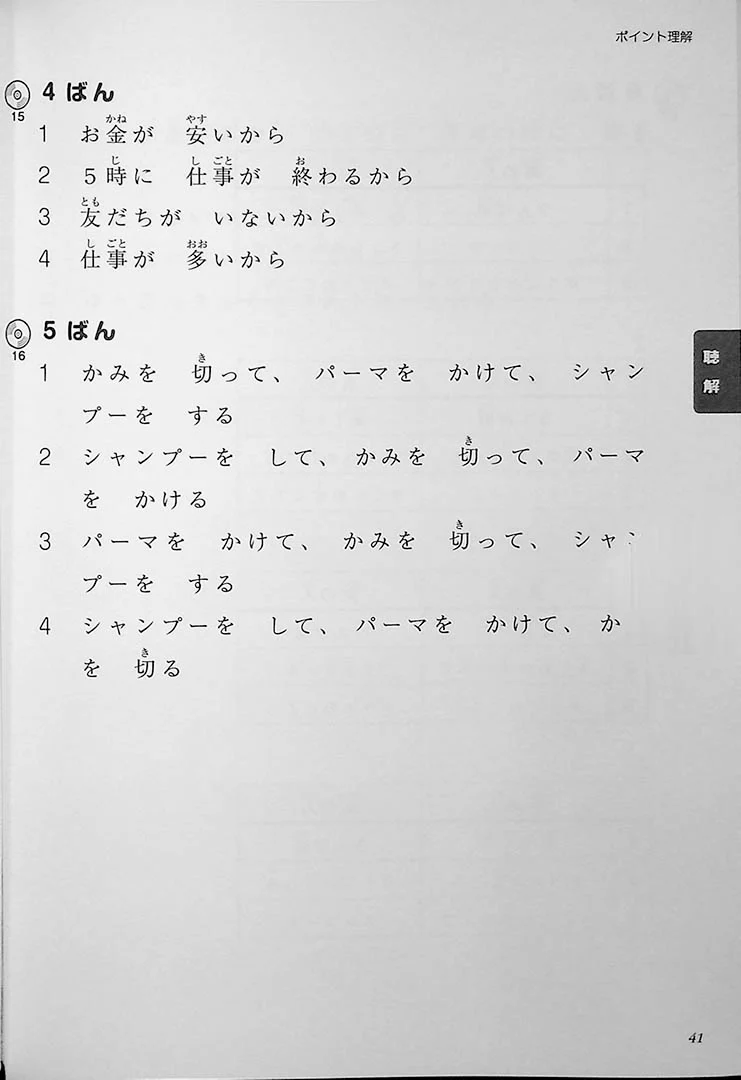 ポイント理解
4ばん
15
1 お金が 安いから
2 5時に 仕事が 終わるから
3 友だちが いないから
4 仕事が 多いから
5ばん
16
1 かみを 切って、 パーマを かけて、 シャン
プーを する
2 シャンプーを して、 かみを 切って、 パーマ
を かける
3 パーマを かけて、 かみを 切って、 シャ
プーを する
4 シャンプーを して、 パーマを かけて、 か
を 切る
聴解
41